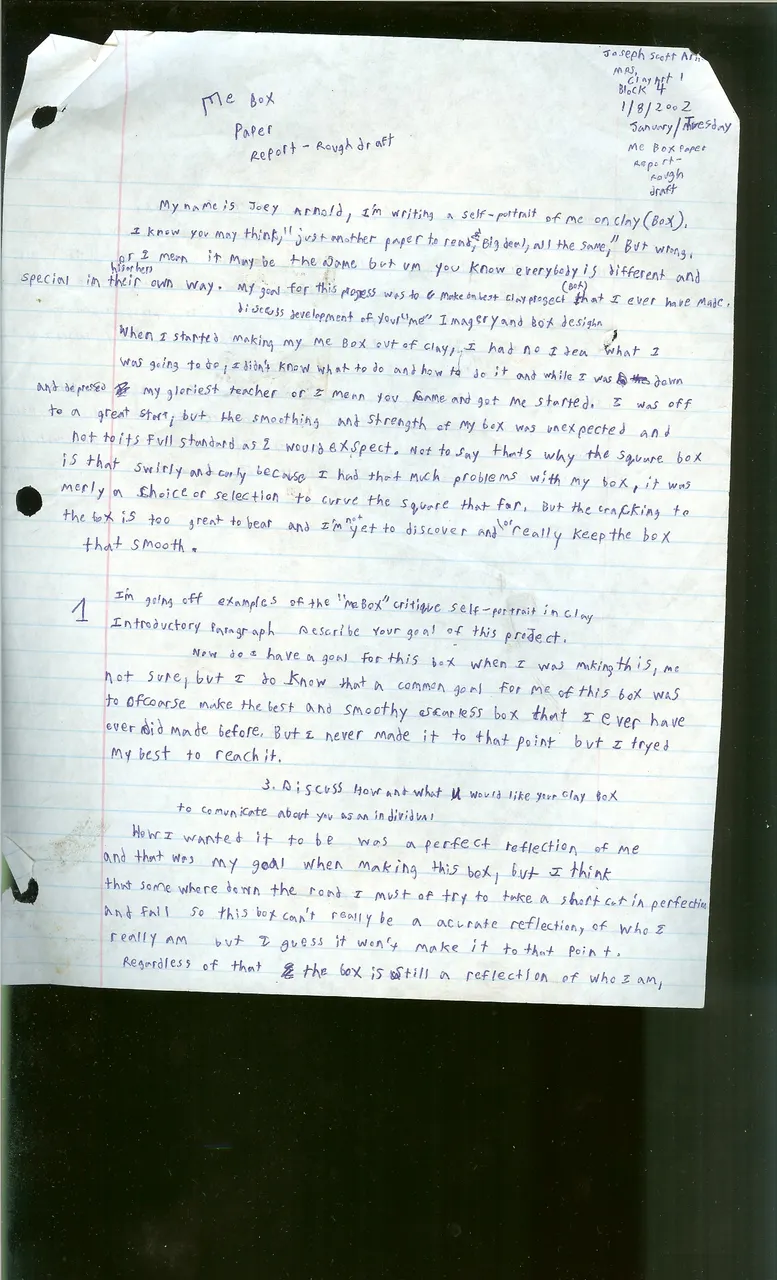 Joseph Scott
Mrs.
Clay Art 1
Block 4
1/8/2002
January/Tuesday
Me Box Paper
Report-
Rough
draft
Me Box
Paper
Report - Rough draft
My name is Joey Arnold, I'm writing a self-portrait of me on clay (Box).
I know you may think, "just another paper to read, Big deal, all the same," But wrong.
or I mean it may be the same but um you know everybody is different and
his or hers
special in their own way. My goal for this progess was to make on best clay project (Box) that I ever have made.
discuss development of your "me" Imagery and Box design
When I started making my me Box out of clay, I had no Idea what I
was going to do, I didn't know what to do and how to do it and while I was down
and depressed my gloriest teacher or I mean you came and got me started. I was off
to a great start, but the smoothing and strength of my box was unexpected and
not to its full standard as I would exspect. Not to say thats why the square box
is that swirly and curly because I had that much problems with my box, it was
merly a choice or selection to curve the square that far. But the cracking to
the box is too great to bear and I'm not yet to discover and/or really keep the box
that smooth.
1 I'm going off examples of the "me Box" critique self-portrait in clay
Introductory Paragraph Describe your goal of this project.
Now do I have a goal for this box when I was making this, me
not sure, but I do know that a common goal for me of this box was
to ofcoarse make the best and smoothy scarless box that I ever have
ever did made before. But I never made it to that point but I tryed
my best to reach it.
3. Discuss How and what u would like your clay Box
to comunicate about you as an individual
How I wanted it to be was a perfect reflection of me
and that was my goal when making this box, but I think
that some where down the road I must of try to take a short cut in perfection
and fail so this box can't really be a acurate reflection, of who I
really am but I guess it won't make it to that point.
Regardless of that the box is still a reflection of who I am,